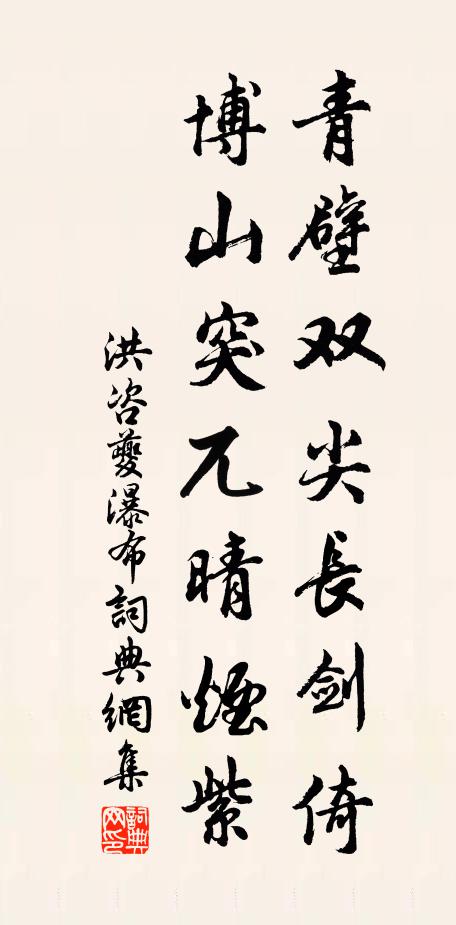 青壁双尖長剑倚
博山突兀晴煙紫
洪咨夔瀑布詞典網集
詞典网印